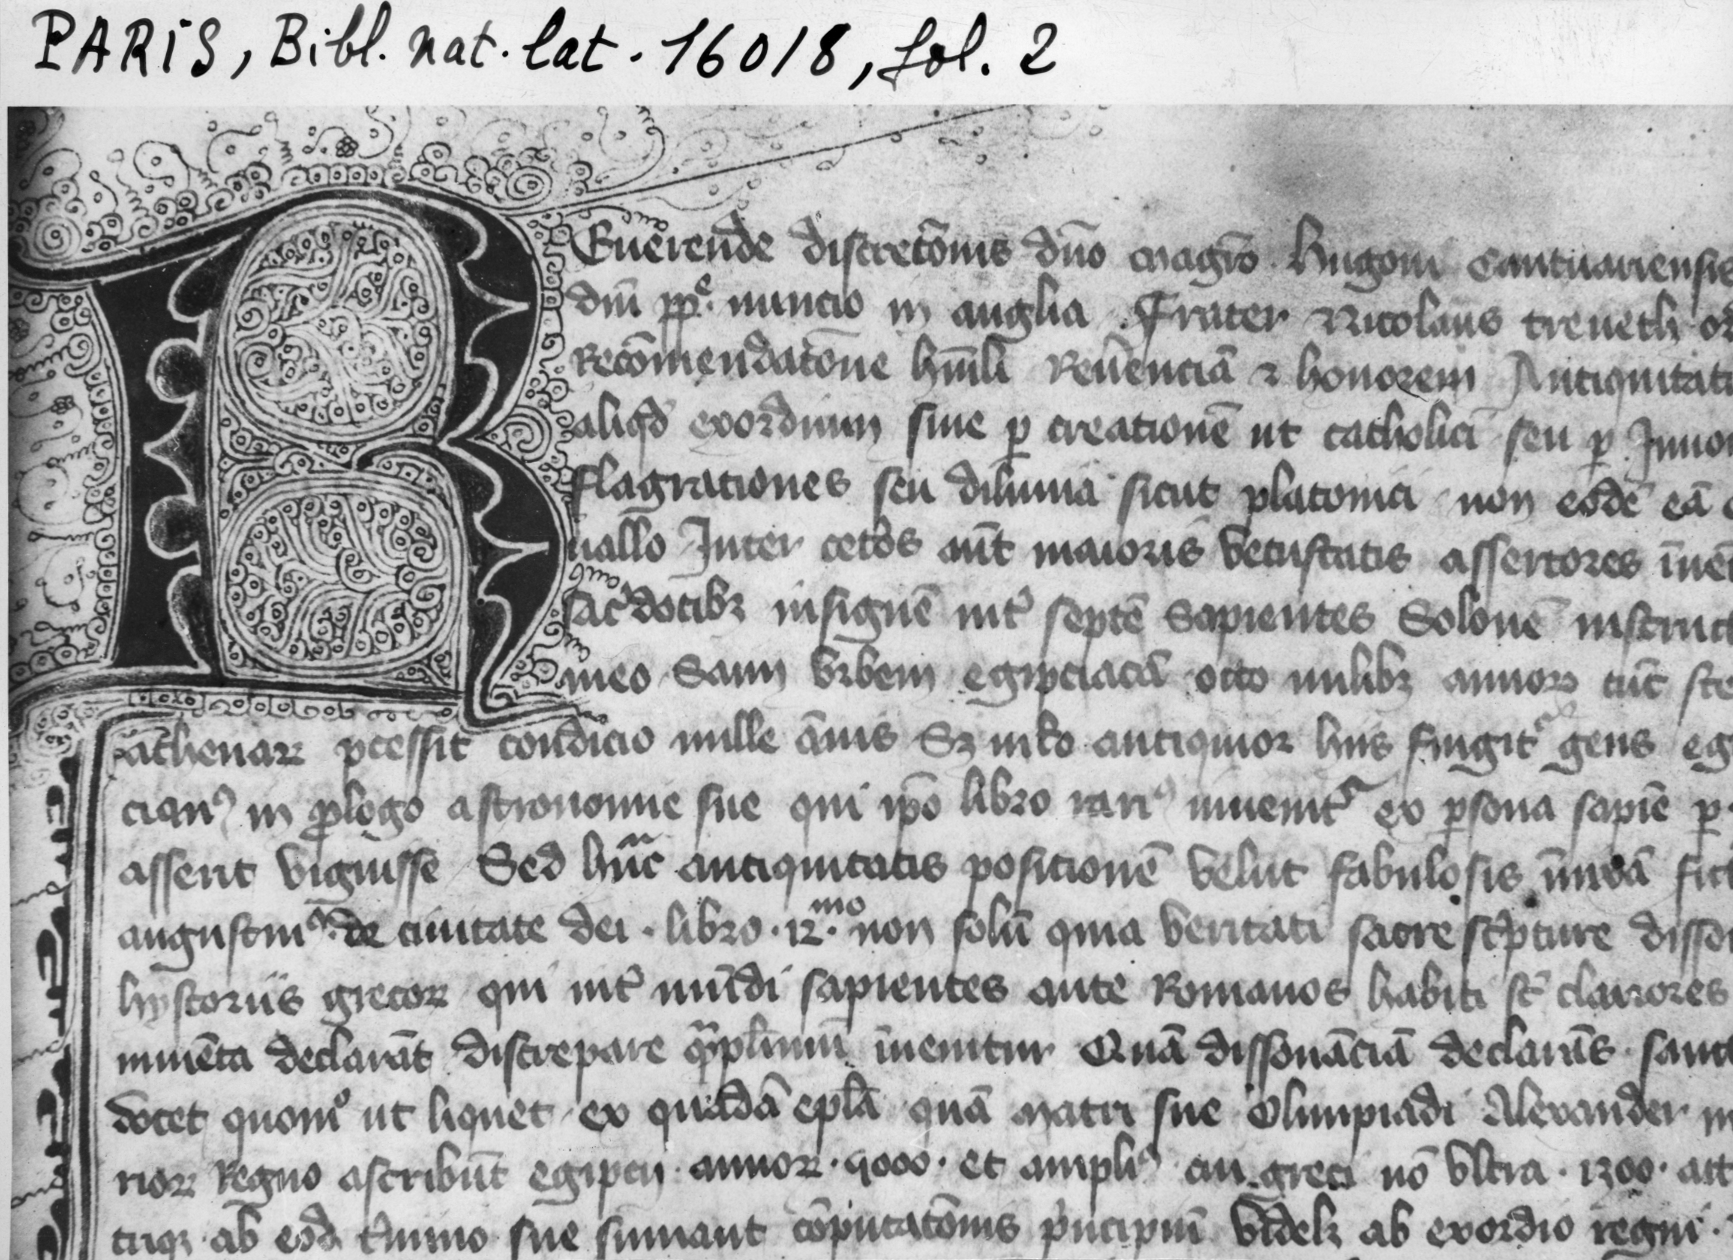 PARIS, Bibl. nat. lat. 16018, fol. 2
REuerende discretōnis dn̄o magr̄o Hugoni Cantuariensis
dn̄i pp̄e nuncio in anglia Frater Nicolaus treueth or
Recōmendatōne hūili Reu̅enciā ⁊ honorem Antiquitati
aliq̄d exordium siue p̱ creationē ut catholici seu p̱
flagrationes seu diluuia sicut platonici non eodē eā
uallo Inter cet̓os aūt maioris vetustatis assertores īuen
sac̓dotibꝫ insignē int̓ septē Sapientes Solonē instruct
meo Saim vrbem egipciacā octo milibꝫ annoꝝ tūc
athenaꝝ p̄cessit condicio mille ānis Sꝫ antiquior hiis fingit᷑ gens eg
cianꝰ in p̄logo astronomie sue qui ip̄o libro rariꝰ inuenit᷑ ex p̱sona sapiē p̱
asserit viguisse Sed hūc antiquitatis positionē velut fabulosis
augustinꝰ de ciuitate dei · libro · 12·mo non solū quia veritati sacre sc̓pture disso
hystoriis grecoꝝ qui int̓ mūdi sapientes ante Romanos habiti st̄ clariores
numēta declarāt discrepare q̄mplurimū īuenitur Quā dissonāciā declarās sanct
docet quomo ut liquet ex quadā ep̄la quā matri sue Olimpiadi Alexander m
rioꝝ Regno ascribūt egipcii annoꝝ · 9000 · et ampliꝰ cū greci nō vltra · 1300 · att
tiqꝫ ab eod̄ t̓mino sue sumant cōputatōnis p̓ncipiū videlꝫ ab exordio regni ·